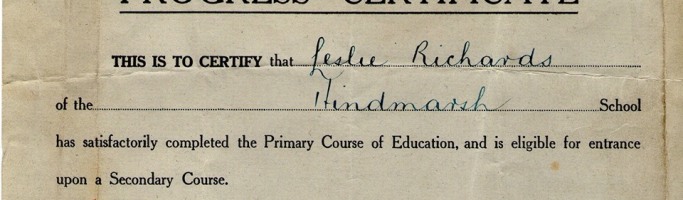 PROGRESS CERTIFICATE
THIS IS TO CERTIFY that Leslie Richards
of the Hindmarsh School
has satisfactorily completed the Primary Course of Education, and is eligible for entrance
upon a Secondary Course.